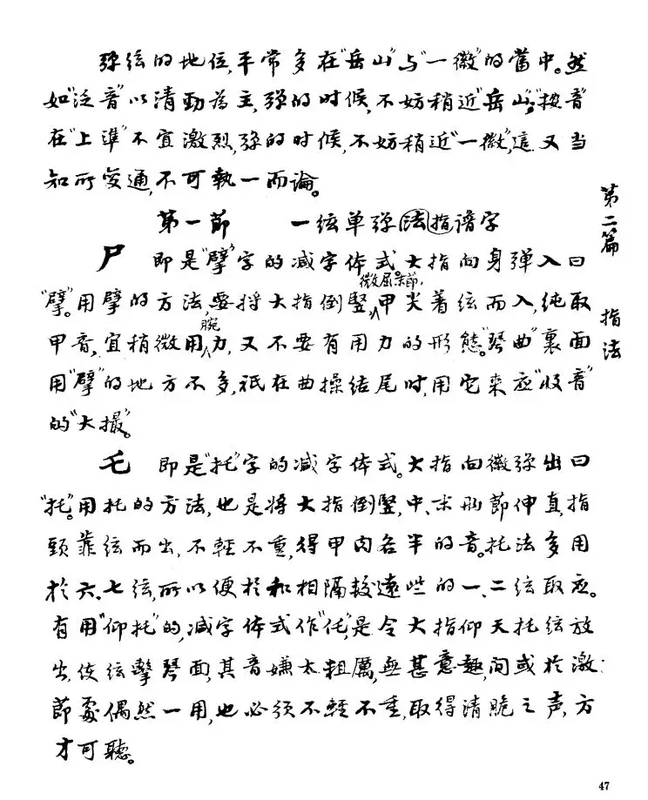 弹弦的地位,平常多在"岳山"与"一徽"的當中。然
如"泛音"以清勁為主,弹的时候,不妨稍近"岳山";"按音"
在"上準"不宜激烈,弹的时候,不妨稍近"一徽",這又当
知所变通,不可執一而論。
第一節 一弦单弹法指谱字
尸 即是"擘"字的减字体式。大指向身弹入曰
微屈末節,
"擘"。用擘的方法,要将大指倒豎,甲尖着弦而入,纯取
腕
甲音,宜稍微用力,又不要有用力的形態。"琴曲"裏面
用"擘"的地方不多,祇在曲操结尾时,用它来应"收音"
的"大撮"。
乇 即是"托"字的减字体式。大指向徽弹出曰
"托"。用托的方法,也是将大指倒豎,中、末两節伸直,指
頭靠弦而出,不輕不重,得甲肉各半的音。托法多用
於六、七弦,所以便於和相隔较遠些的一、二弦取应。
有用"仰托"的,减字体式作"仛",是令大指仰天托弦放
出,使弦擊琴面,其音嫌太粗厲,無甚意趣,间或於激
節處偶然一用,也必须不輕不重,取得清脆之声,方
才可聽。
第二篇 指法
47